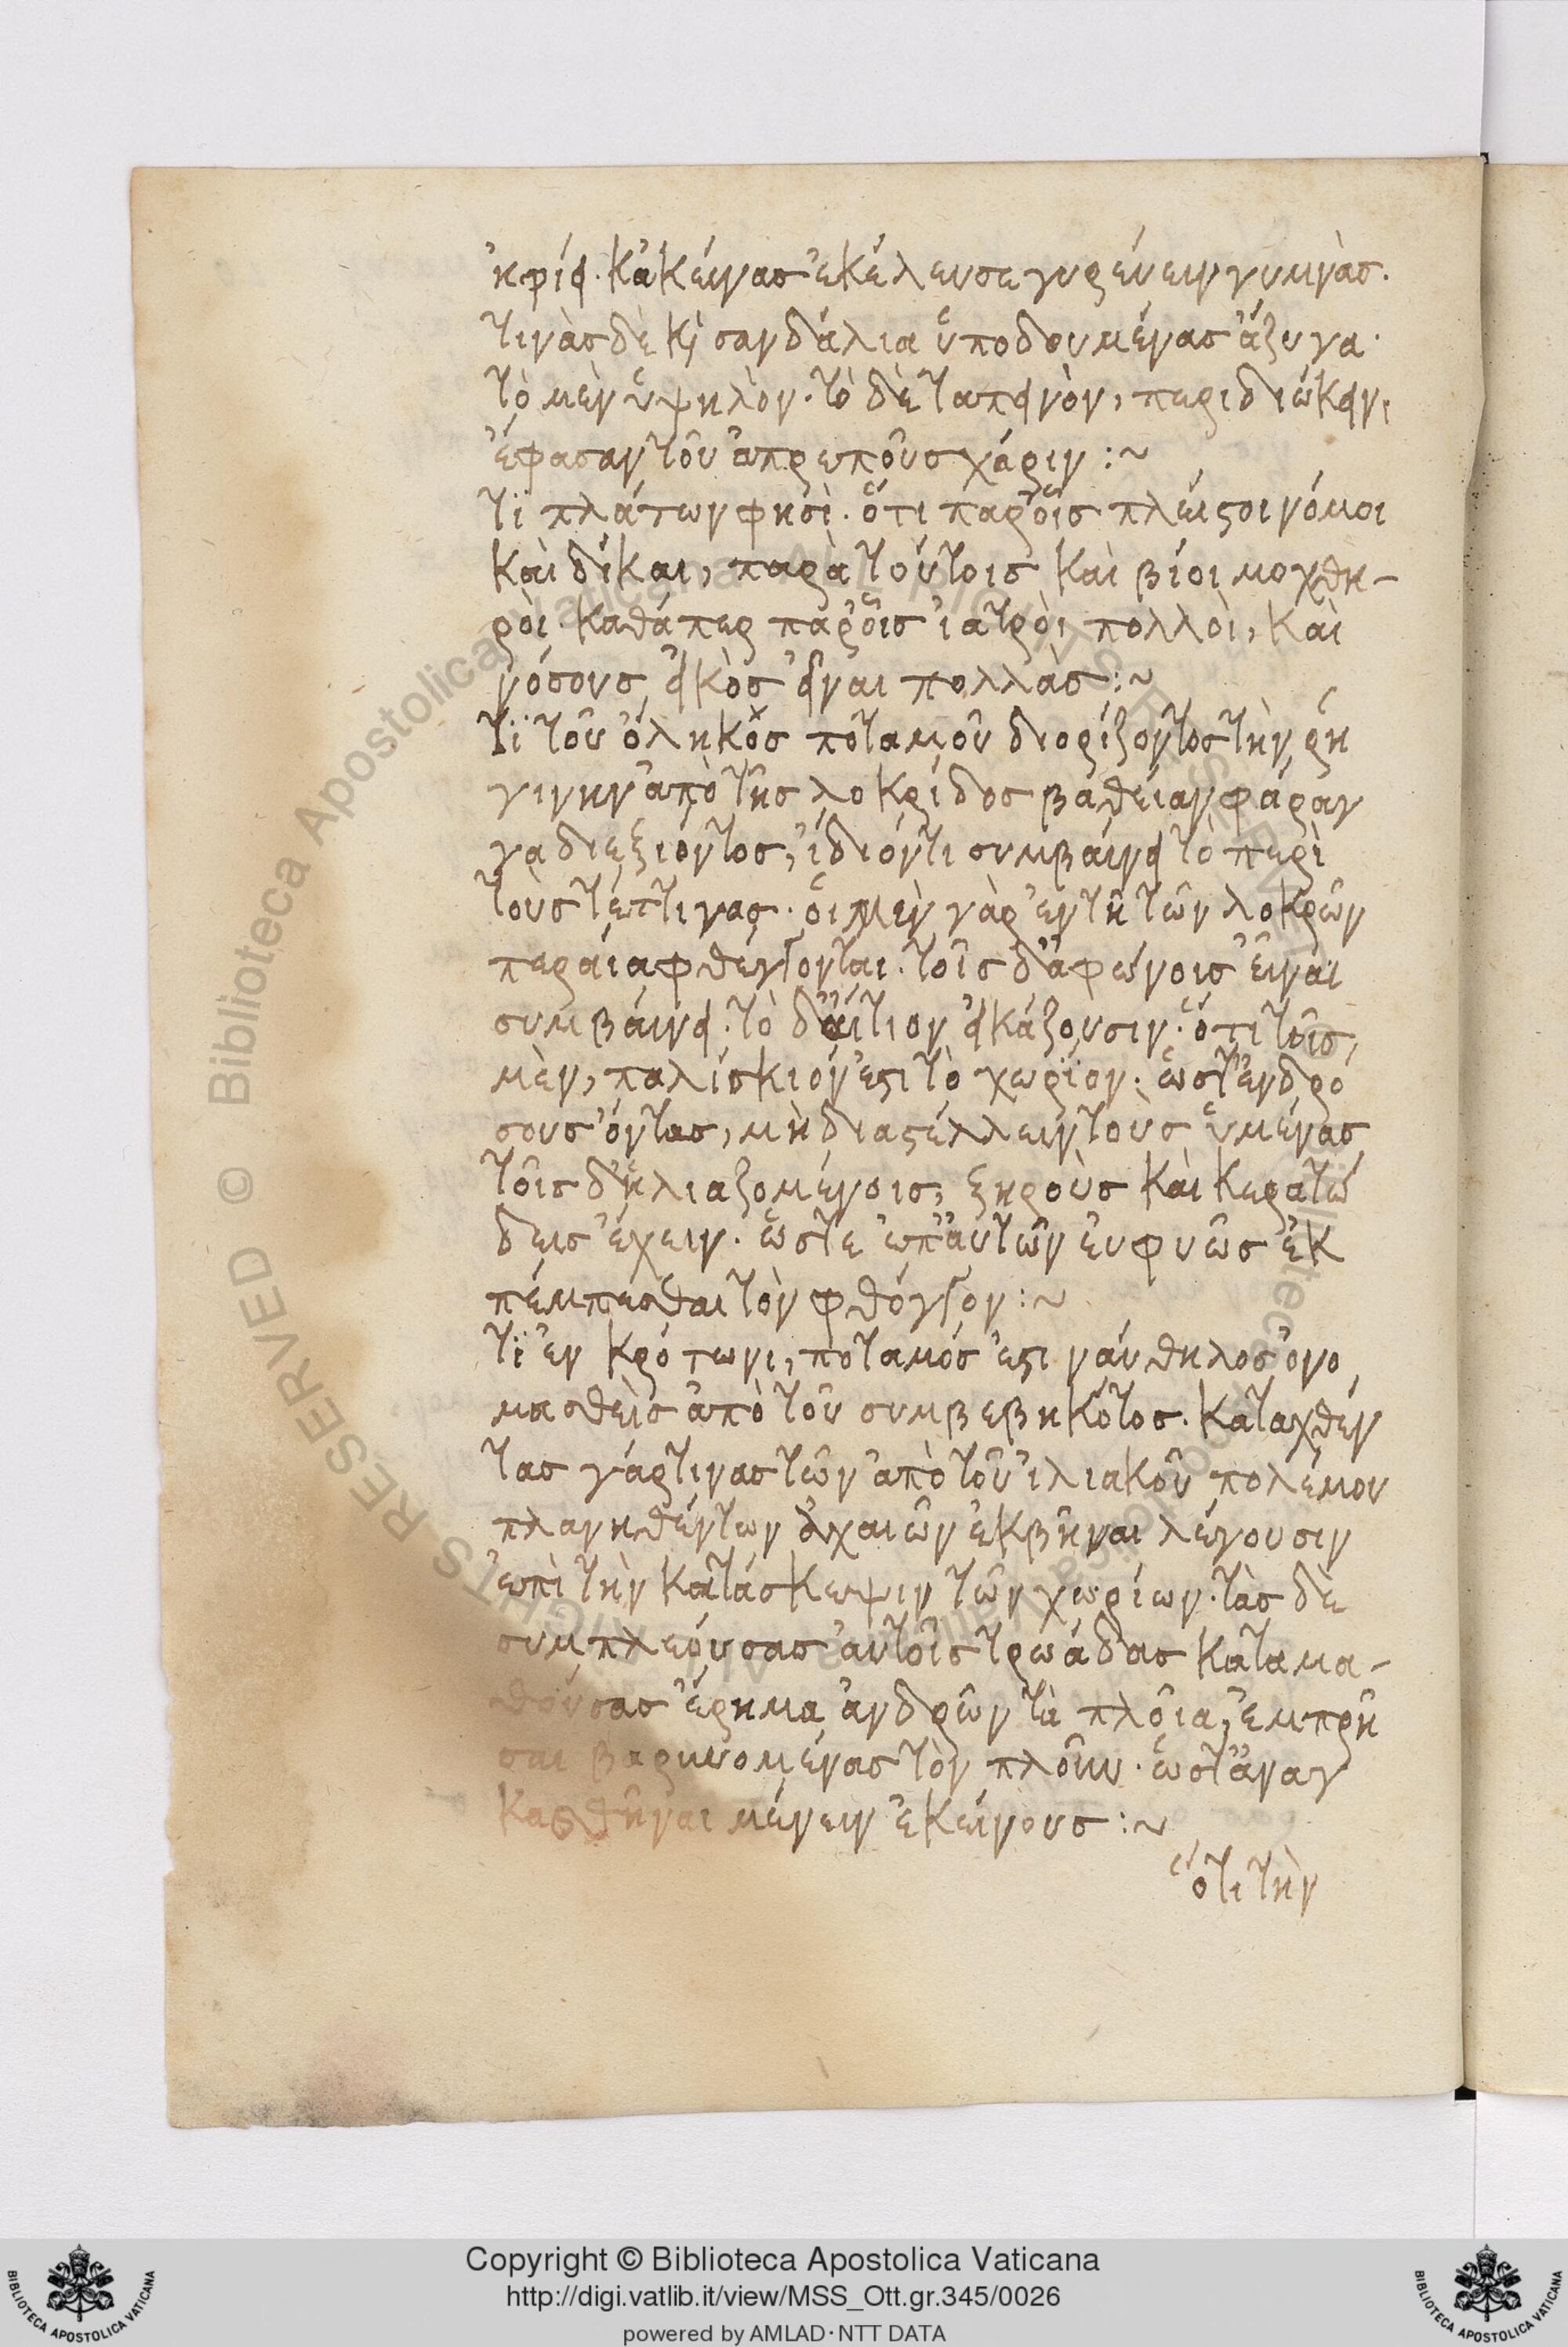 ἠκρίει. κἀκείνας ἐκέλευσε γυρεύειν γυμνὰς.
τινὰς δὲ καὶ σανδάλια ὑποδουμένας ἄζυγα.
τὸ μὲν ὑψηλὸν. τὸ δὲ ταπεινὸν, περιδιώκειν,
ἔφασαν τοῦ ἀπρεποῦς χάριν :~
Ὅτι πλάτων φησὶ. ὅτι παρ' οἷς πλεῖστοι νόμοι
καὶ δίκαι, παρὰ τούτοις καὶ βίοι μοχθη-
ροὶ. καθάπερ παρ' οἷς ἰατροὶ πολλοὶ, καὶ
νόσους εἰκὸς εἶναι πολλὰς :~
Ὅτι τοῦ ὀληκὸς ποταμοῦ διορίζοντος τὴν ῥη
γίνην ἀπὸ τῆς λοκρίδος βαθεῖαν φάραν
γα διεξιόντος, ἴδιόν τι συμβαίνει τὸ περὶ
τοὺς τέττιγας. οἱ μὲν γὰρ ἐν τῇ τῶν λοκρῶν
περαίᾳ φθέγγονται. τοῖς δ' ἀφώνοις εἶναι
συμβαίνει. τὸ δ' αἴτιον εἰκάζουσιν. ὅτι τοῖς
μὲν, παλίσκιόν ἐστι τὸ χωρίον. ὥστ' ἐνδρό
σους ὄντας, μὴ διαστέλλειν τοὺς ὑμένας
τοῖς δ' ἡλιαζομένοις, ξηροὺς καὶ κερατώ
δεις ἔχειν. ὥστε ἀπ' αὐτῶν εὐφυῶς ἐκ
πέμπεσθαι τὸν φθόγγον :~
Ὅτι ἐν κρότωνι, ποταμός ἐστι ναύθηλος ὀνο
μασθεὶς ἀπὸ τοῦ συμβεβηκότος. καταχθέν
τας γάρ τινας τῶν ἀπὸ τοῦ ἰλιακοῦ πολέμου
πλανηθέντων ἀχαιῶν ἐκβῆναι λέγουσιν
ἐπὶ τὴν κατάσκεψιν τῶν χωρίων. τὰς δὲ
συμπλεούσας αὐτοῖς τρωάδας καταμα-
θούσας ἔρημα ἀνδρῶν τὰ πλοῖα, ἐμπρῆ
σαι βαρυνομένας τὸν πλοῦν. ὥστ' ἀναγ
κασθῆναι μένειν ἐκείνους :~
ὅτι τὴν
Copyright © Biblioteca Apostolica Vaticana
http://digi.vatlib.it/view/MSS_Ott.gr.345/0026
powered by AMLAD · NTT DATA